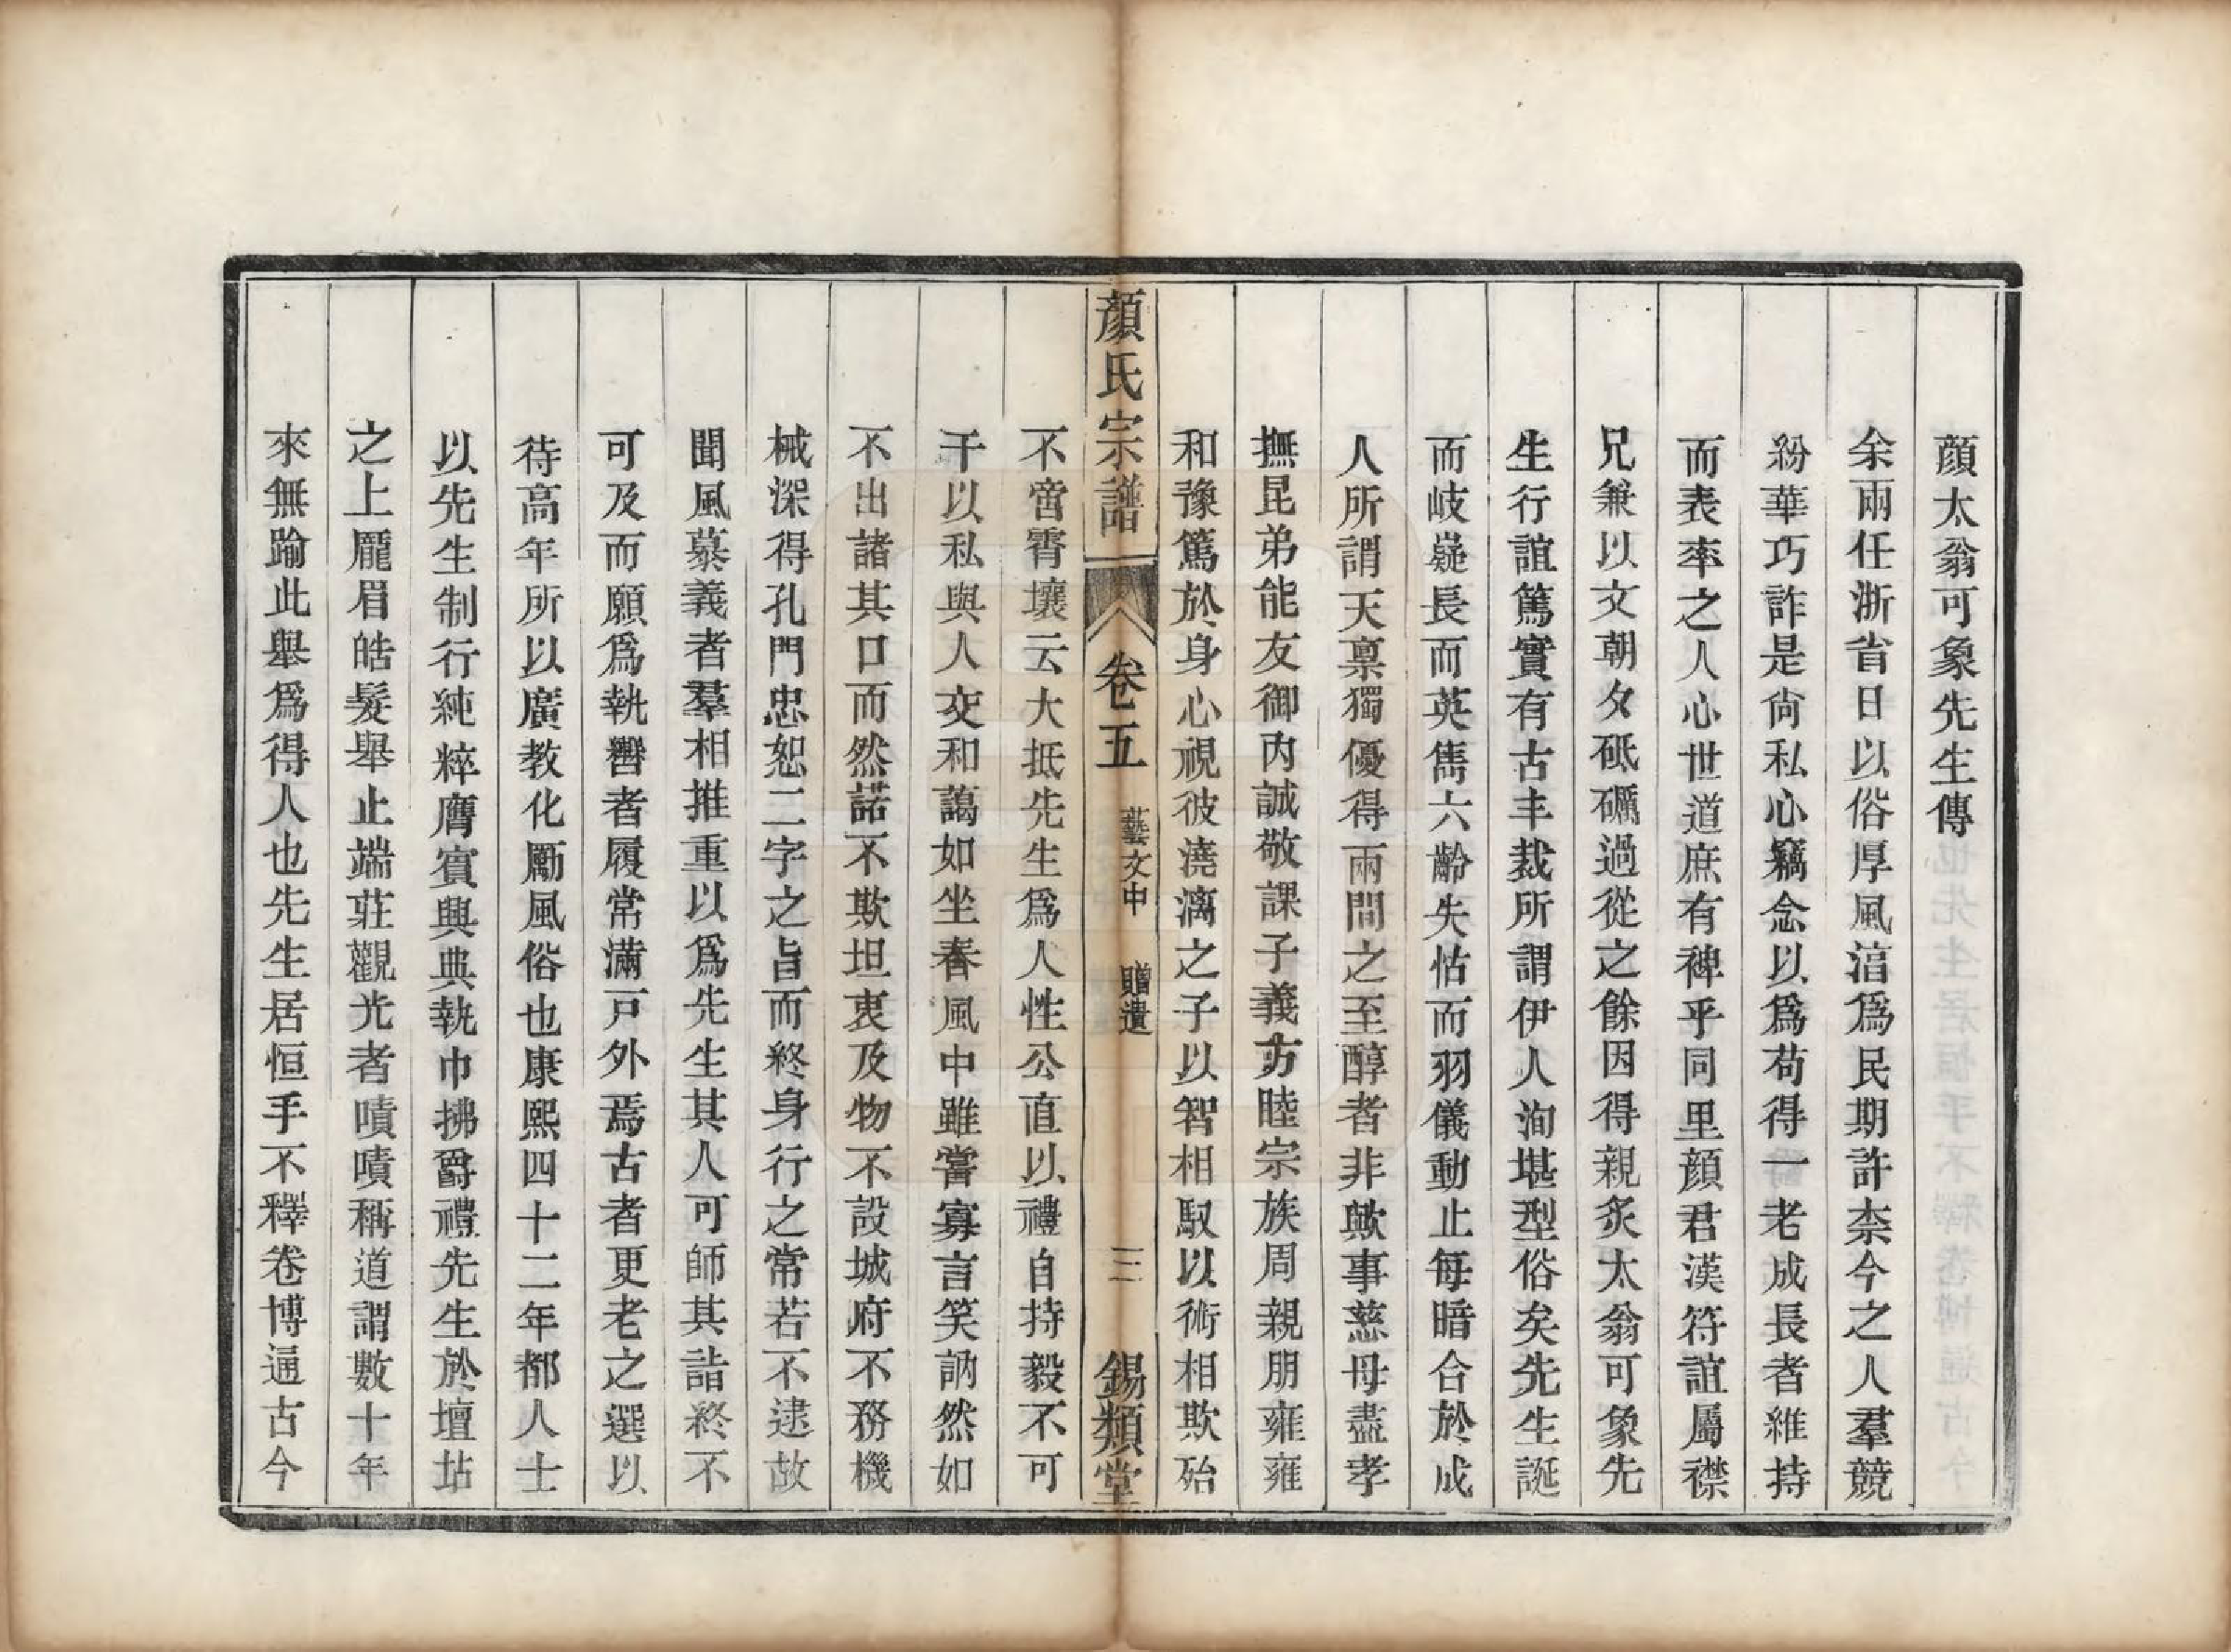 顏太翁可象先生傳
余兩任浙省日以俗厚風湻爲民期許柰今之人羣競
紛華巧詐是尙私心竊念以爲苟得一老成長者維持
而表率之人心世道庶有裨乎同里顏君漢符誼屬襟
兄兼以文朝夕砥礪過從之餘因得親炙太翁可象先
生行誼篤實有古丰裁所謂伊人洵堪型俗矣先生誕
而岐嶷長而英雋六齡失怙而羽儀動止每暗合於成
人所謂天禀獨優得兩間之至醇者非歟事慈母盡孝
撫昆弟能友御內誠敬課子義方睦宗族周親朋雍雍
和豫篤於身心視彼澆漓之子以智相馭以術相欺殆
顏氏宗譜
卷五
藝文中
贈遺
三
錫類堂
不啻霄壤云大抵先生爲人性公直以禮自持毅不可
干以私與人交和藹如坐春風中雖嘗寡言笑訥然如
不出諸其口而然諾不欺坦衷及物不設城府不務機
械深得孔門忠恕二字之旨而終身行之常若不逮故
聞風慕義者羣相推重以爲先生其人可師其詣終不
可及而願爲執轡者履常滿戸外焉古者更老之選以
待高年所以廣教化勵風俗也康熙四十二年都人士
以先生制行純粹膺賓興典執巾拂爵禮先生於壇坫
之上龎眉皓髮舉止端莊觀光者嘖嘖稱道謂數十年
來無踰此舉爲得人也先生居恒手不釋卷博通古今